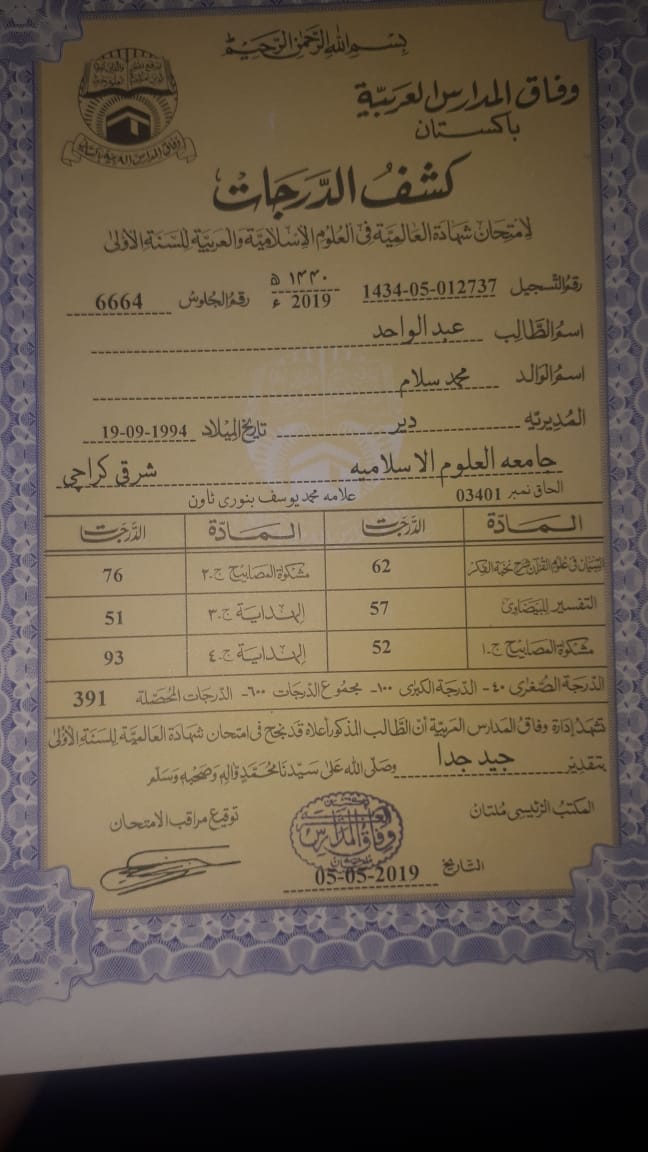 بِسْمِ اللهِ الرَّحْمٰنِ الرَّحِيْمِ
وفاق المدارس العربيّة
باكستان
كشفُ الدَّرَجَات
لامتحان شهادة العالميّة في العلوم الإسلاميّة والعربيّة للسّنة الأولىٰ
رقم التّسجيل 1434-05-012737 ١٤٤٠ هـ 2019 ء رقم الجلوس 6664
اسم الطّالب عبد الواحد
اسم الوالد محمد سلام
المديريّه دير تاريخ الميلاد 19-09-1994
جامعه العلوم الاسلاميه شرقى كراچى
الحاق نمبر 03401 علامه محمد يوسف بنورى ٹاون
المادّة الدّرجات المادّة الدّرجات
التبيان فى علوم القرآن شرح نخبة الفكر 62 مشكوة المصابيح ج-٢ 76
التفسير للبيضاوى 57 الهداية ج-٣ 51
مشكوة المصابيح ج-١ 52 الهداية ج-٤ 93
الدرجة الصّغرى ٤٠- الدرجة الكبرى ١٠٠- مجموع الدرجات ٦٠٠- الدرجات المحصّلة 391
تشهد إدارة وفاق المدارس العربيّة أنّ الطّالب المذكور أعلاه قد نجح فى امتحان شهادة العالميّة للسّنة الأولىٰ
بتقدير جيد جدا وصلّى الله على سيّدنا محمّد وّاٰله وصحبه وسلّم
المكتب الرّئيسى مُلتان
توقيع مراقب الامتحان
وفاق المدارس
التاريخ 05-05-2019